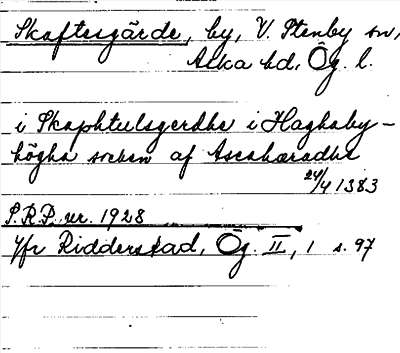 Skaftesgärde, by, V. Stenby sn,
Aska hd, Ög. l.
i Skaphtulsgerdhe i Haghaby-
högha sochen af Ascaharadhe
24/4 1383
S.R.P. nr. 1928
Jfr Ridderstad, Ög. II, 1 s. 97